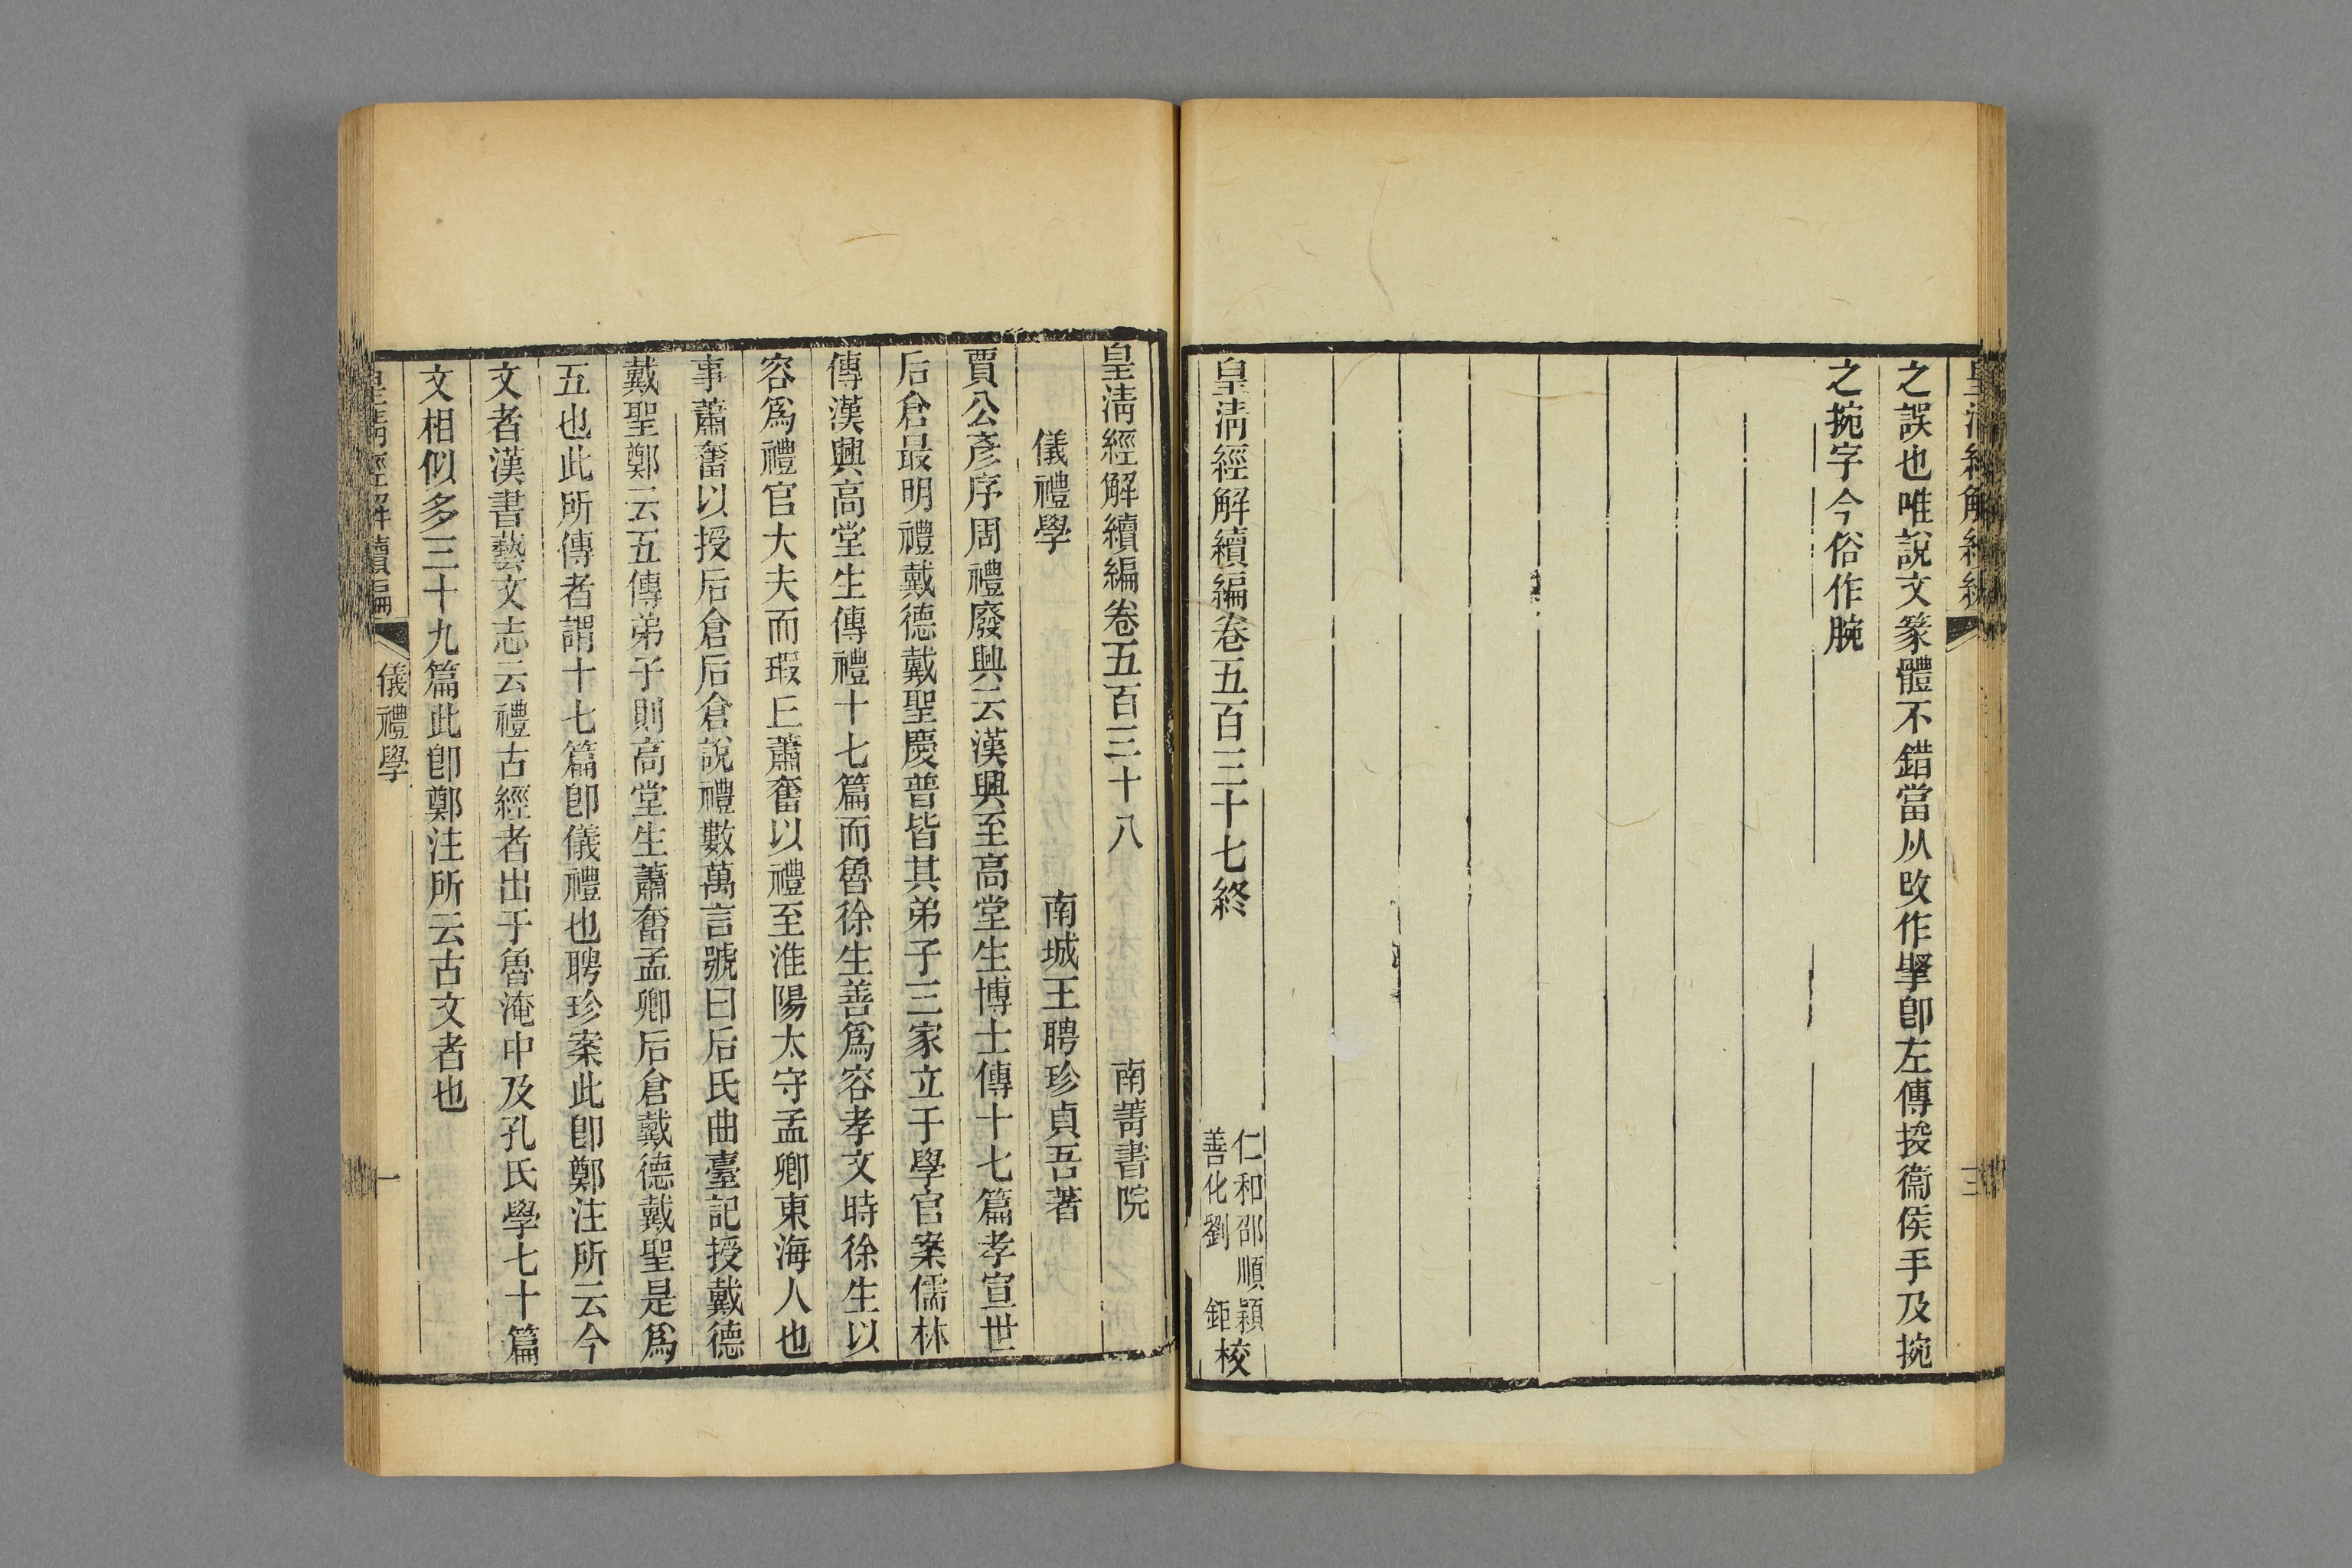 皇清經解續編
三
之誤也唯說文篆體不錯當从改作掔卽左傳捘衞侯手及捥
之捥字今俗作腕
皇清經解續編卷五百三十七終
仁和邵順穎
善化劉鉅
校
皇淸經解續編卷五百三十八
南菁書院
儀禮學
南城王聘珍貞吾著
賈公彥序周禮廢興云漢興至高堂生博士傳十七篇孝宣世
后倉最明禮戴德戴聖慶普皆其弟子三家立于學官案儒林
傳漢興高堂生傳禮十七篇而魯徐生善爲容孝文時徐生以
容爲禮官大夫而瑕丘蕭奮以禮至淮陽太守孟卿東海人也
事蕭奮以授后倉后倉說禮數萬言號曰后氏曲臺記授戴德
戴聖鄭云五傳弟子則高堂生蕭奮孟卿后倉戴德戴聖是爲
五也此所傳者謂十七篇卽儀禮也聘珍案此卽鄭注所云今
文者漢書藝文志云禮古經者出于魯淹中及孔氏學七十篇
文相似多三十九篇此卽鄭注所云古文者也
皇清經解續編
儀禮學
一